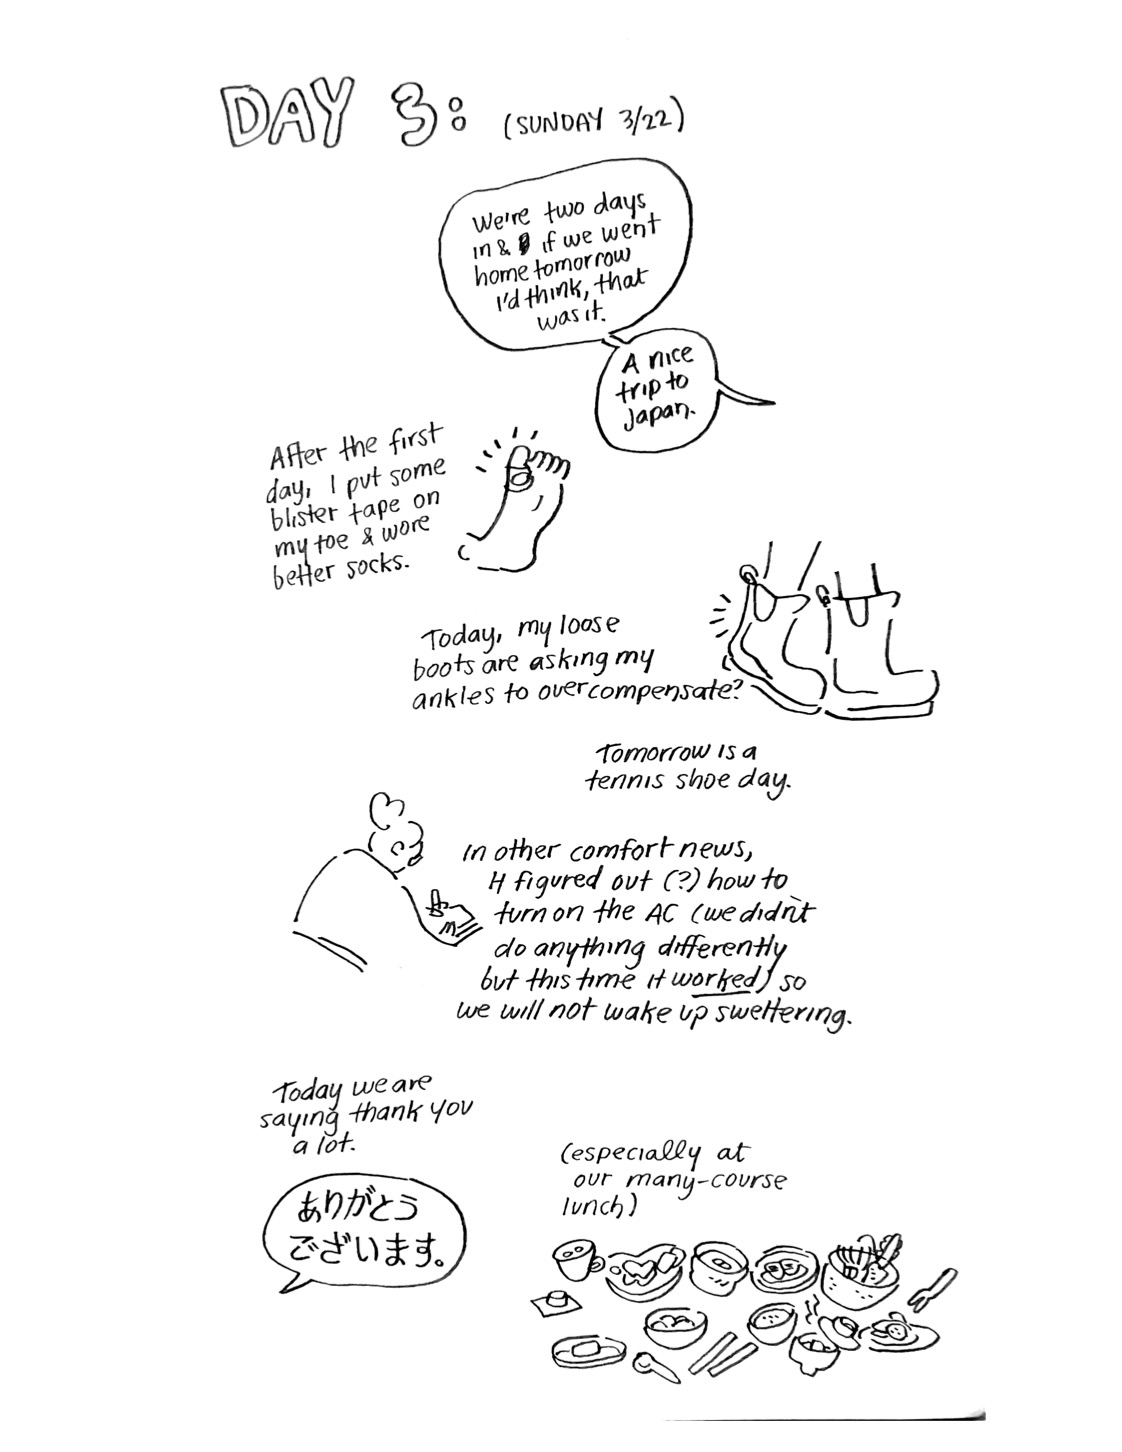 DAY 3: (SUNDAY 3/22)
We're two days
in & if we went
home tomorrow
I'd think, that
was it.
A nice
trip to
Japan.
After the first
day, I put some
blister tape on
my toe & wore
better socks.
Today, my loose
boots are asking my
ankles to overcompensate?
Tomorrow is a
tennis shoe day.
In other comfort news,
H figured out (?) how to
turn on the AC (we didn't
do anything differently
but this time it worked) so
we will not wake up sweltering.
Today we are
saying thank you
a lot.
ありがとう
ございます。
(especially at
our many-course
lunch)